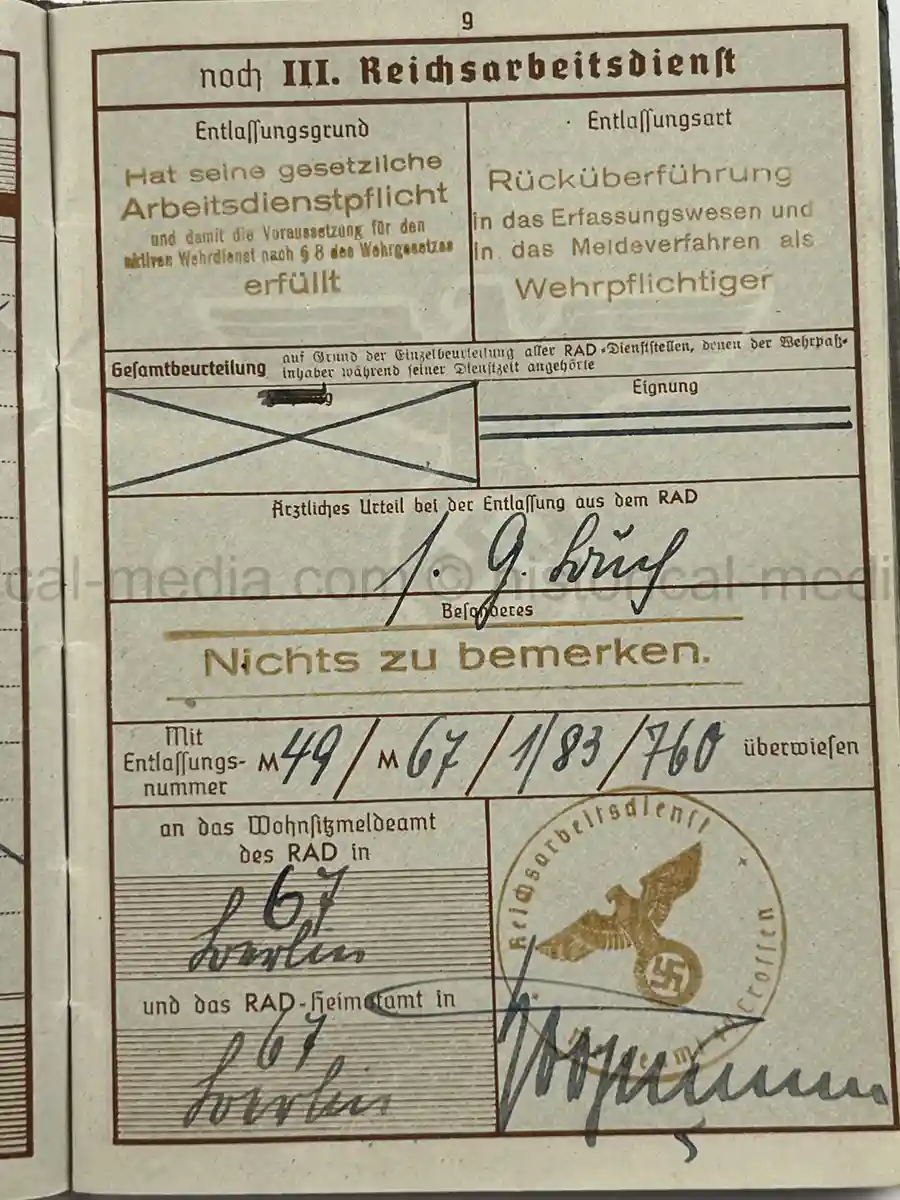 9
noch III. Reichsarbeitsdienst
Entlassungsgrund
Hat seine gesetzliche
Arbeitsdienstpflicht
und damit die Voraussetzung für den
aktiven Wehrdienst nach § 8 des Wehrgesetzes
erfüllt
Entlassungsart
Rücküberführung
in das Erfassungswesen und
in das Meldeverfahren als
Wehrpflichtiger
Gesamtbeurteilung auf Grund der Einzelbeurteilung aller RAD-Dienststellen, denen der Wehrpaß-
inhaber während seiner Dienstzeit angehörte
Eignung
Ärztliches Urteil bei der Entlassung aus dem RAD
Besonderes
Nichts zu bemerken.
Mit
Entlassungs-
nummer
M 49 / M 67 / 1/83 / 760 überwiesen
an das Wohnsitzmeldeamt
des RAD in
67
Berlin
und das RAD-Heimatamt in
67
Berlin
Reichsarbeitsdienst
Crossen
cal-media.com © historical-medi